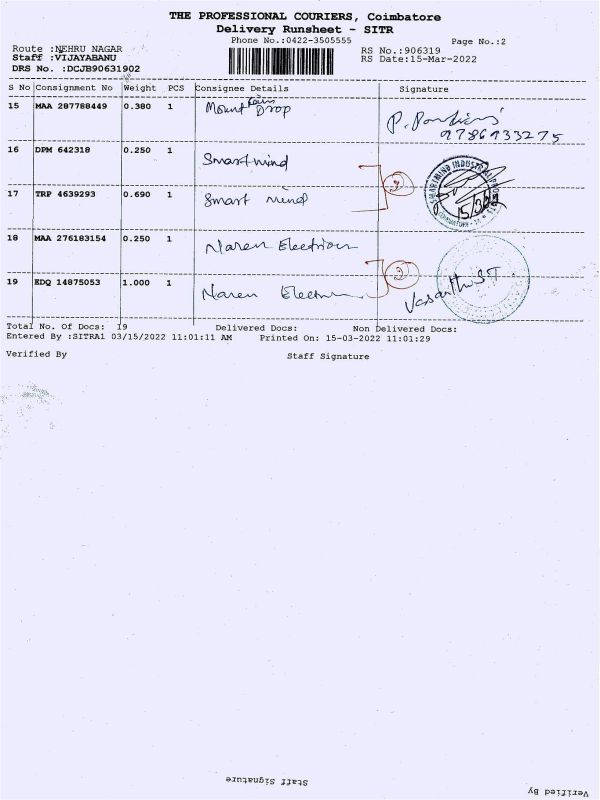 THE PROFESSIONAL COURIERS, Coimbatore
Delivery Runsheet - SITR
Phone No.:0422-3505555
Page No.:2
Route :NEHRU NAGAR
RS No.:906319
Staff :VIJAYABANU
RS Date:15-Mar-2022
DRS No. :DCJB90631902
S No Consignment No Weight PCS Consignee Details Signature
15 MAA 287788449 0.380 1 Mount Rain Drop
9786933275
16 DPM 642318 0.250 1 Smart mind
17 TRP 4639293 0.690 1 Smart mind
2
15/3/22
18 MAA 276183154 0.250 1 Naren
19 EDQ 14875053 1.000 1 Naren
2
Total No. Of Docs: 19 Delivered Docs: Non Delivered Docs:
Entered By :SITRA1 03/15/2022 11:01:11 AM Printed On: 15-03-2022 11:01:29
Verified By Staff Signature
Staff Signature
Verified By